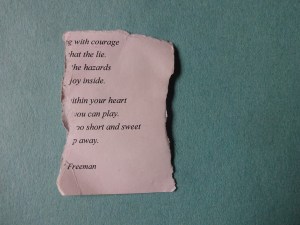 g with courage
hat the lie.
the hazards
joy inside.
ithin your heart
you can play.
oo short and sweet
p away.
Freeman